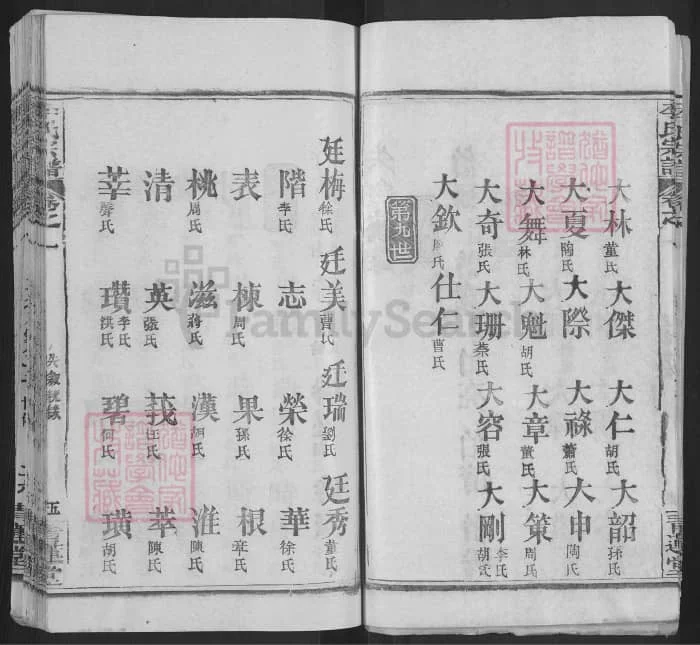 李氏宗譜
大林 董氏 大傑 大仁 胡氏 大韶 孫氏
大夏 陶氏 大際 大祿 蕭氏 大申 陶氏
大舞 林氏 大魁 胡氏 大章 董氏 大策 周氏
大奇 張氏 大珊 蔡氏 大容 張氏 大剛 李氏 胡氏
大欽 仕仁 曹氏
第九世
廷梅 徐氏 廷美 曹氏 廷瑞 劉氏 廷秀 董氏
階 李氏 志 榮 徐氏 華 徐氏
表 棟 周氏 果 孫氏 根 章氏
桃 周氏 滋 蔣氏 漢 淮 陳氏
清 英 張氏 莪 汪氏 萃 陳氏
莘 龔氏 瓚 李氏 洪氏 碧 何氏 璜 胡氏
李氏宗譜
五
FamilySearch